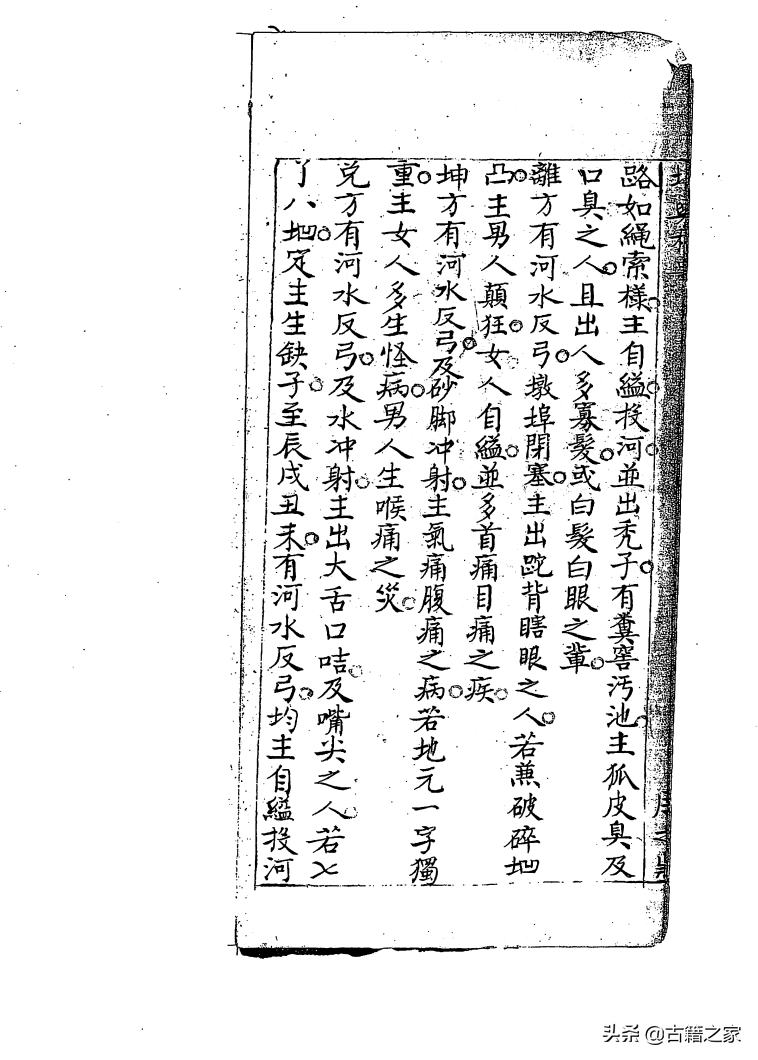 路如繩索樣主自縊投河並出禿子有糞窖汚池主狐皮臭及
口臭之人且出人多寡髮或白髮白眼之輩
離方有河水反弓墩埠閉塞主出跎背瞎眼之人若蕉破碎地
凸主男人顛狂女人自縊並多首痛目痛之疾
坤方有河水反弓及砂脚冲射主氣痛腹痛之病若地元一字獨
重主女人多生怪病男人生喉痛之災
兌方有河水反弓及水冲射主出大舌口咭及嘴尖之人若
了八地定主生缺子至辰戌丑未有河水反弓均主自縊投河
头条 @古籍之家